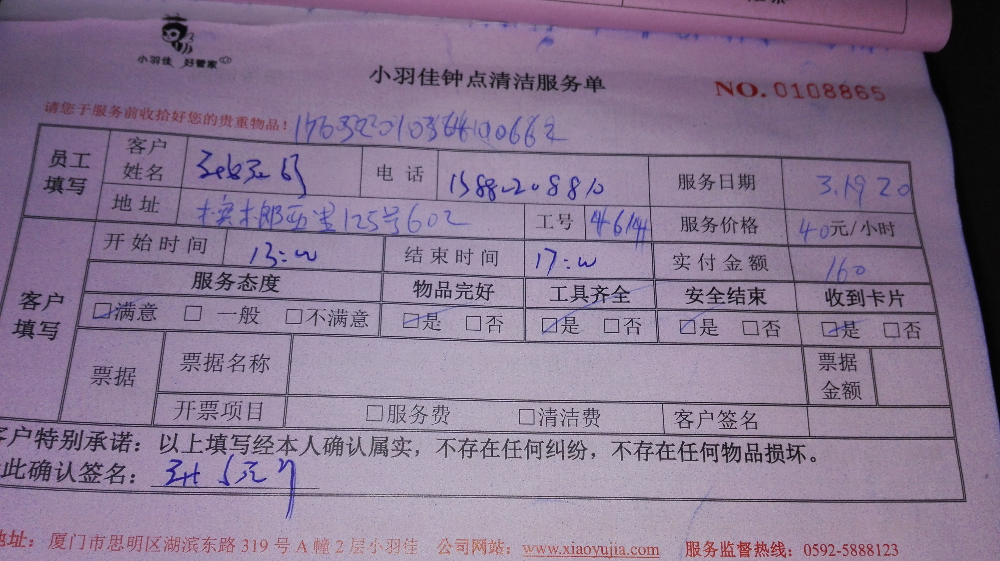 小羽佳 好管家
小羽佳钟点清洁服务单
NO. 0108865
请您于服务前收拾好您的贵重物品!
员工填写 客户姓名 电话 服务日期 3.19 20
地址 125号602 工号 4614 服务价格 40元/小时
客户填写 开始时间 13:00 结束时间 17:00 实付金额 160
服务态度 物品完好 工具齐全 安全结束 收到卡片
☑满意 □一般 □不满意 ☑是 □否 ☑是 □否 ☑是 □否 ☑是 □否
票据 票据名称 票据金额
开票项目 □服务费 □清洁费 客户签名
客户特别承诺:以上填写经本人确认属实,不存在任何纠纷,不存在任何物品损坏。
此确认签名:
地址:厦门市思明区湖滨东路319号A幢2层小羽佳 公司网站:www.xiaoyujia.com 服务监督热线:0592-5888123